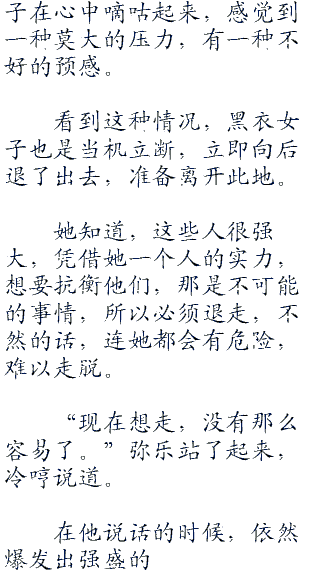 子在心中嘀咕起来，感觉到
一种莫大的压力，有一种不
好的预感。
看到这种情况，黑衣女
子也是当机立断，立即向后
退了出去，准备离开此地。
她知道，这些人很强
大，凭借她一个人的实力，
想要抗衡他们，那是不可能
的事情，所以必须退走，不
然的话，连她都会有危险，
难以走脱。
“现在想走，没有那么
容易了。”弥乐站了起来，
冷哼说道。
在他说话的时候，依然
爆发出强盛的